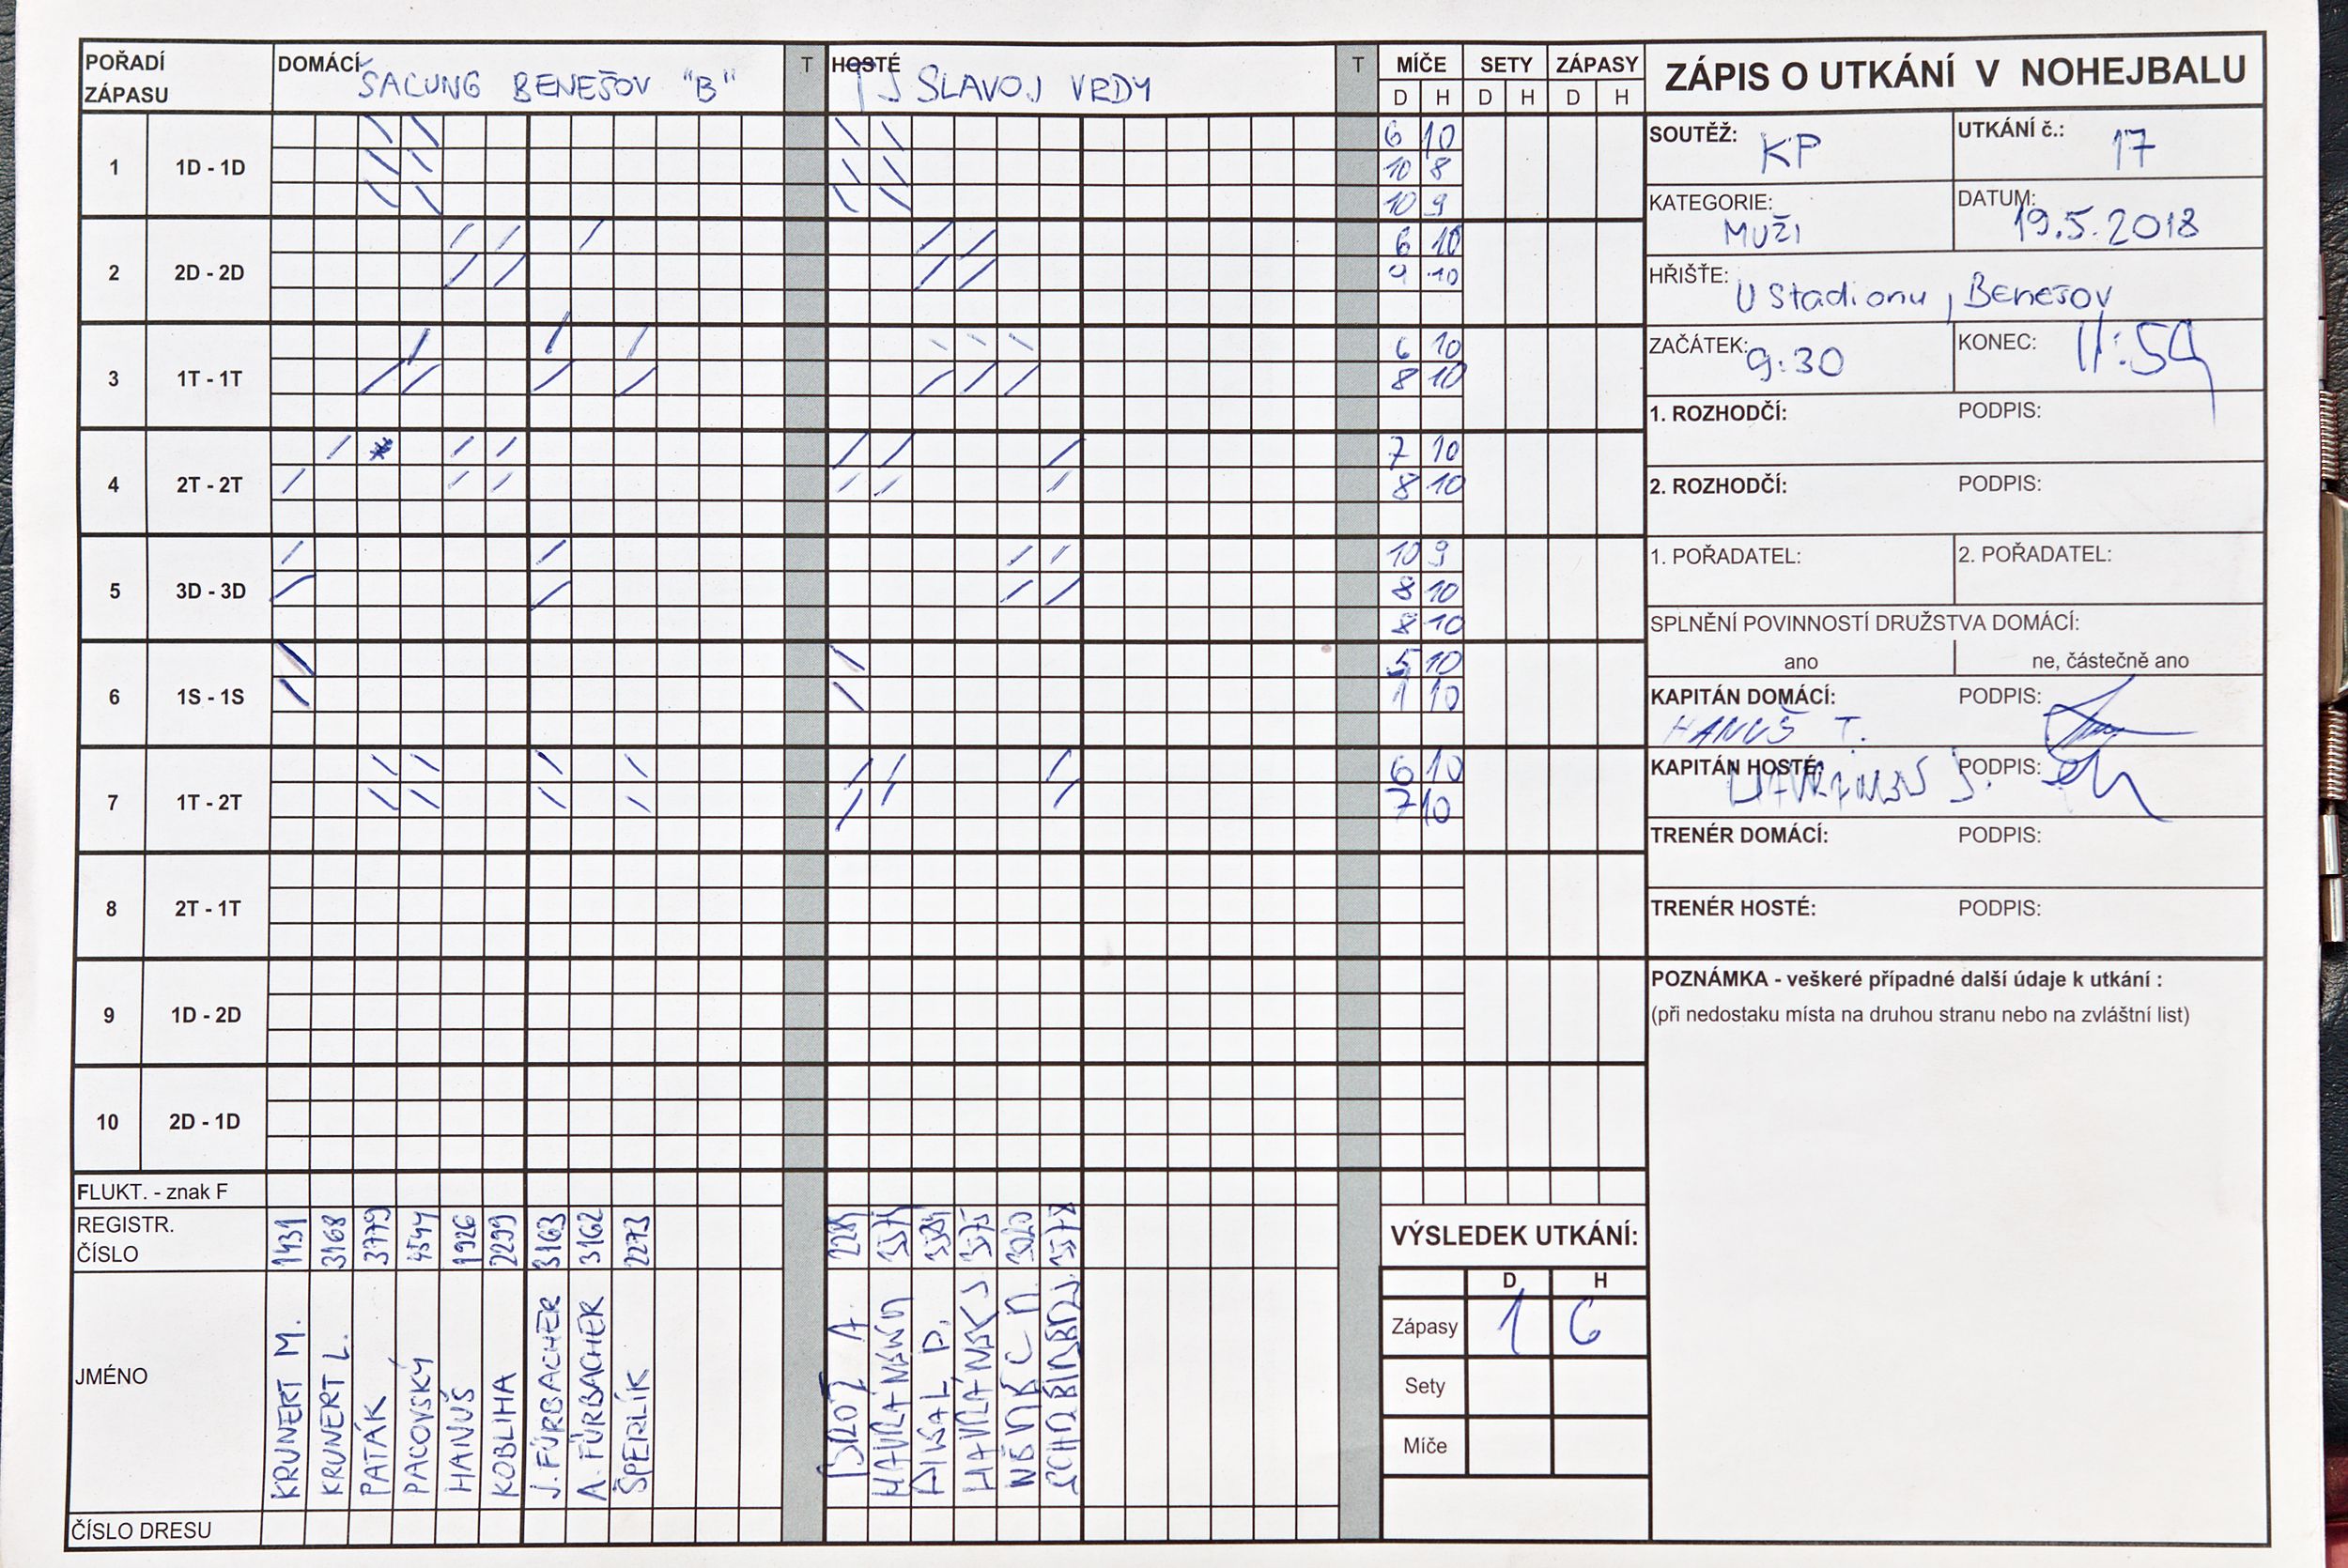 POŘADÍ ZÁPASU
DOMÁCÍ ŠACUNG BENEŠOV "B"
T
HOSTÉ TJ SLAVOJ VRDY
T
MÍČE SETY ZÁPASY
D H D H D H
1 1D - 1D
6 10
10 8
10 9
2 2D - 2D
6 10
9 10
3 1T - 1T
6 10
8 10
4 2T - 2T
7 10
8 10
5 3D - 3D
10 9
8 10
8 10
6 1S - 1S
5 10
1 10
7 1T - 2T
6 10
7 10
8 2T - 1T
9 1D - 2D
10 2D - 1D
FLUKT. - znak F
REGISTR. ČÍSLO
1431 3168 3779 4544 1926 2299 3163 3162 2273
JMÉNO
KRUNERT M.
KRUNERT L.
PATÁK
PACOVSKÝ
HANUŠ
KOBLIHA
J. FÜRBACHER
A. FÜRBACHER
ŠPERLÍK
BROŽ A.
ČÍSLO DRESU
VÝSLEDEK UTKÁNÍ:
D H
Zápasy 1 6
Sety
Míče
ZÁPIS O UTKÁNÍ V NOHEJBALU
SOUTĚŽ: KP
UTKÁNÍ č.: 17
KATEGORIE: MUŽI
DATUM: 19.5.2018
HŘIŠTE: U Stadionu, Benešov
ZAČÁTEK: 9:30
KONEC: 11:59
1. ROZHODČÍ: PODPIS:
2. ROZHODČÍ: PODPIS:
1. POŘADATEL: 2. POŘADATEL:
SPLNĚNÍ POVINNOSTÍ DRUŽSTVA DOMÁCÍ:
ano ne, částečně ano
KAPITÁN DOMÁCÍ: PODPIS:
HANUŠ T.
KAPITÁN HOSTÉ: PODPIS:
TRENÉR DOMÁCÍ: PODPIS:
TRENÉR HOSTÉ: PODPIS:
POZNÁMKA - veškeré případné další údaje k utkání :
(při nedostaku místa na druhou stranu nebo na zvláštní list)